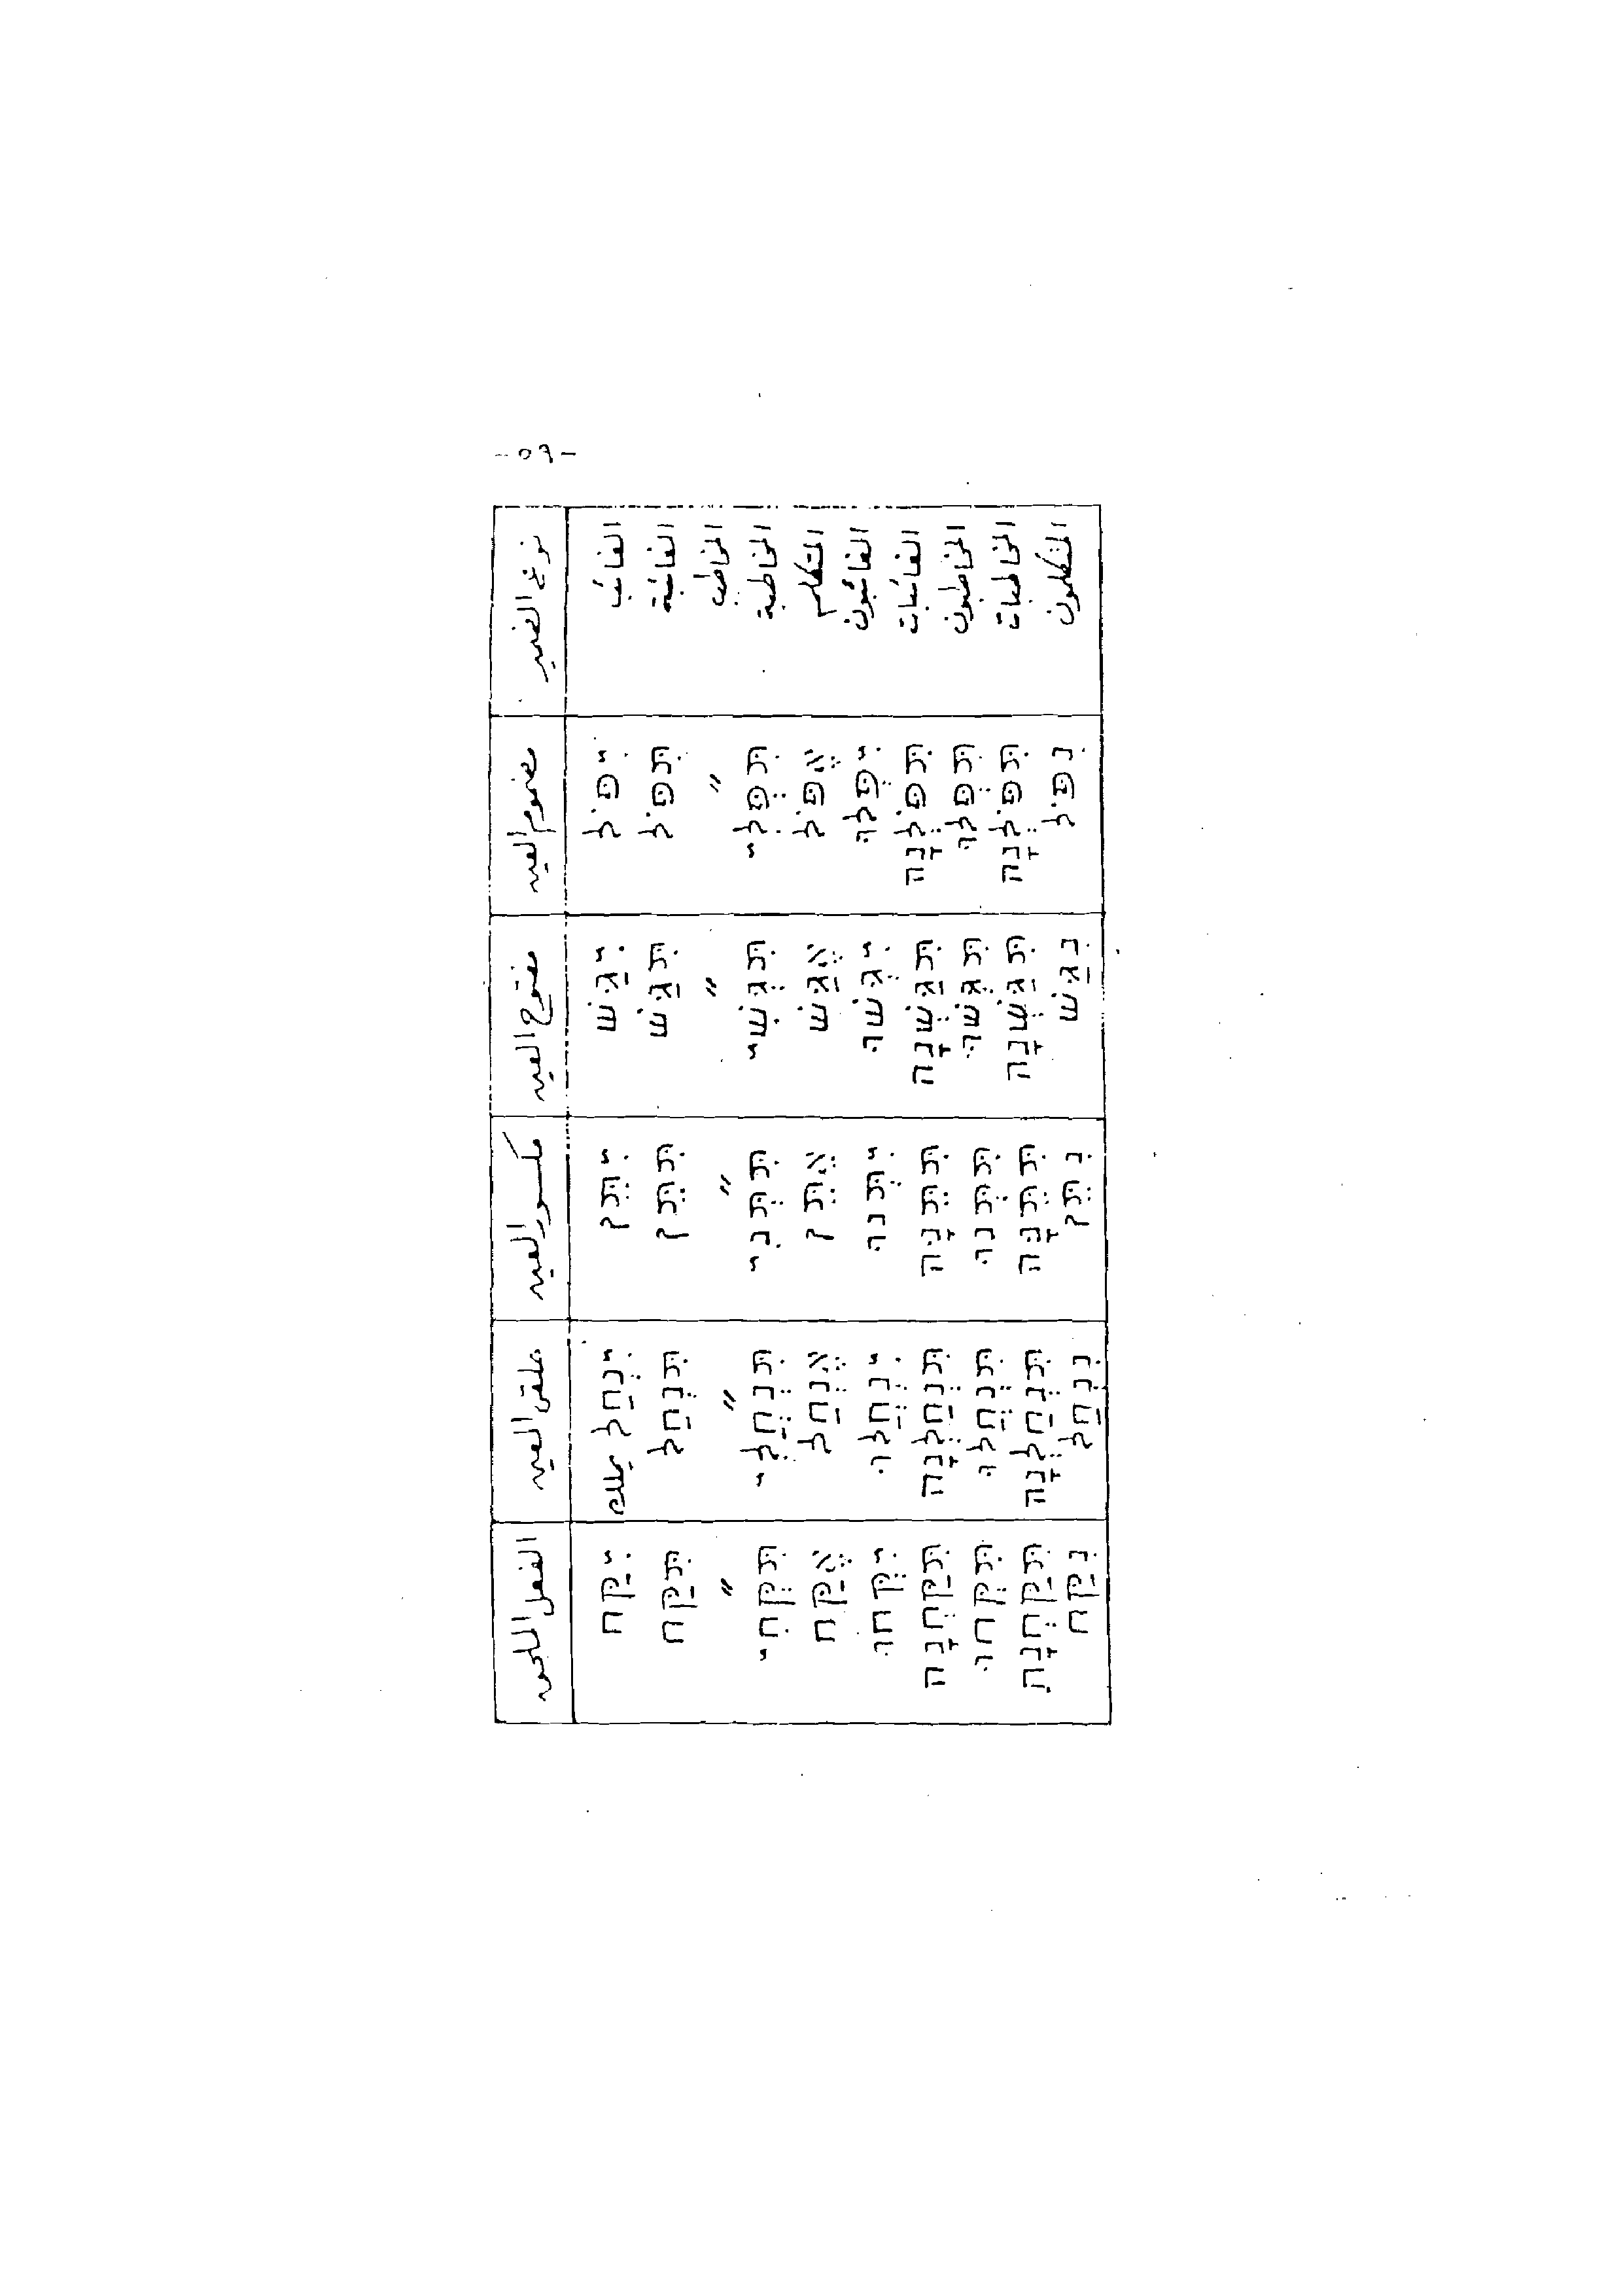 -٥٦-
نوع الضمير مضموم العين مفتوح العين مكسور العين حلقى العين الفعل الملحق
الغائب יִפֹּל יִגַּשׁ יִתֵּן יִנְחַל يملك יִקַּח
الغائبة תִּפֹּל תִּגַּשׁ תִּתֵּן תִּנְחַל תִּקַּח
المخاطب " " " " "
المخاطبة תִּפְּלִי תִּגְּשִׁי תִּתְּנִי תִּנְחֲלִי תִּקְּחִי
المتكلم אֶפֹּל אֶגַּשׁ אֶתֵּן אֶנְחַל אֶקַּח
الغائبون יִפְּלוּ יִגְּשׁוּ יִתְּנוּ יִנְחֲלוּ יִקְּחוּ
الغائبات תִּפֹּלְנָה תִּגַּשְׁנָה תִּתֵּנָּה תִּנְחַלְנָה תִּקַּחְנָה
المخاطبون תִּפְּלוּ תִּגְּשׁוּ תִּתְּנוּ תִּנְחֲלוּ תִּקְּחוּ
المخاطبات תִּפֹּלְנָה תִּגַּשְׁנָה תִּתֵּנָּה תִּנְחַלְנָה תִּקַּחְנָה
المتكلمون נִפֹּל נִגַּשׁ נִתֵּן נִנְחַל נִקַּח